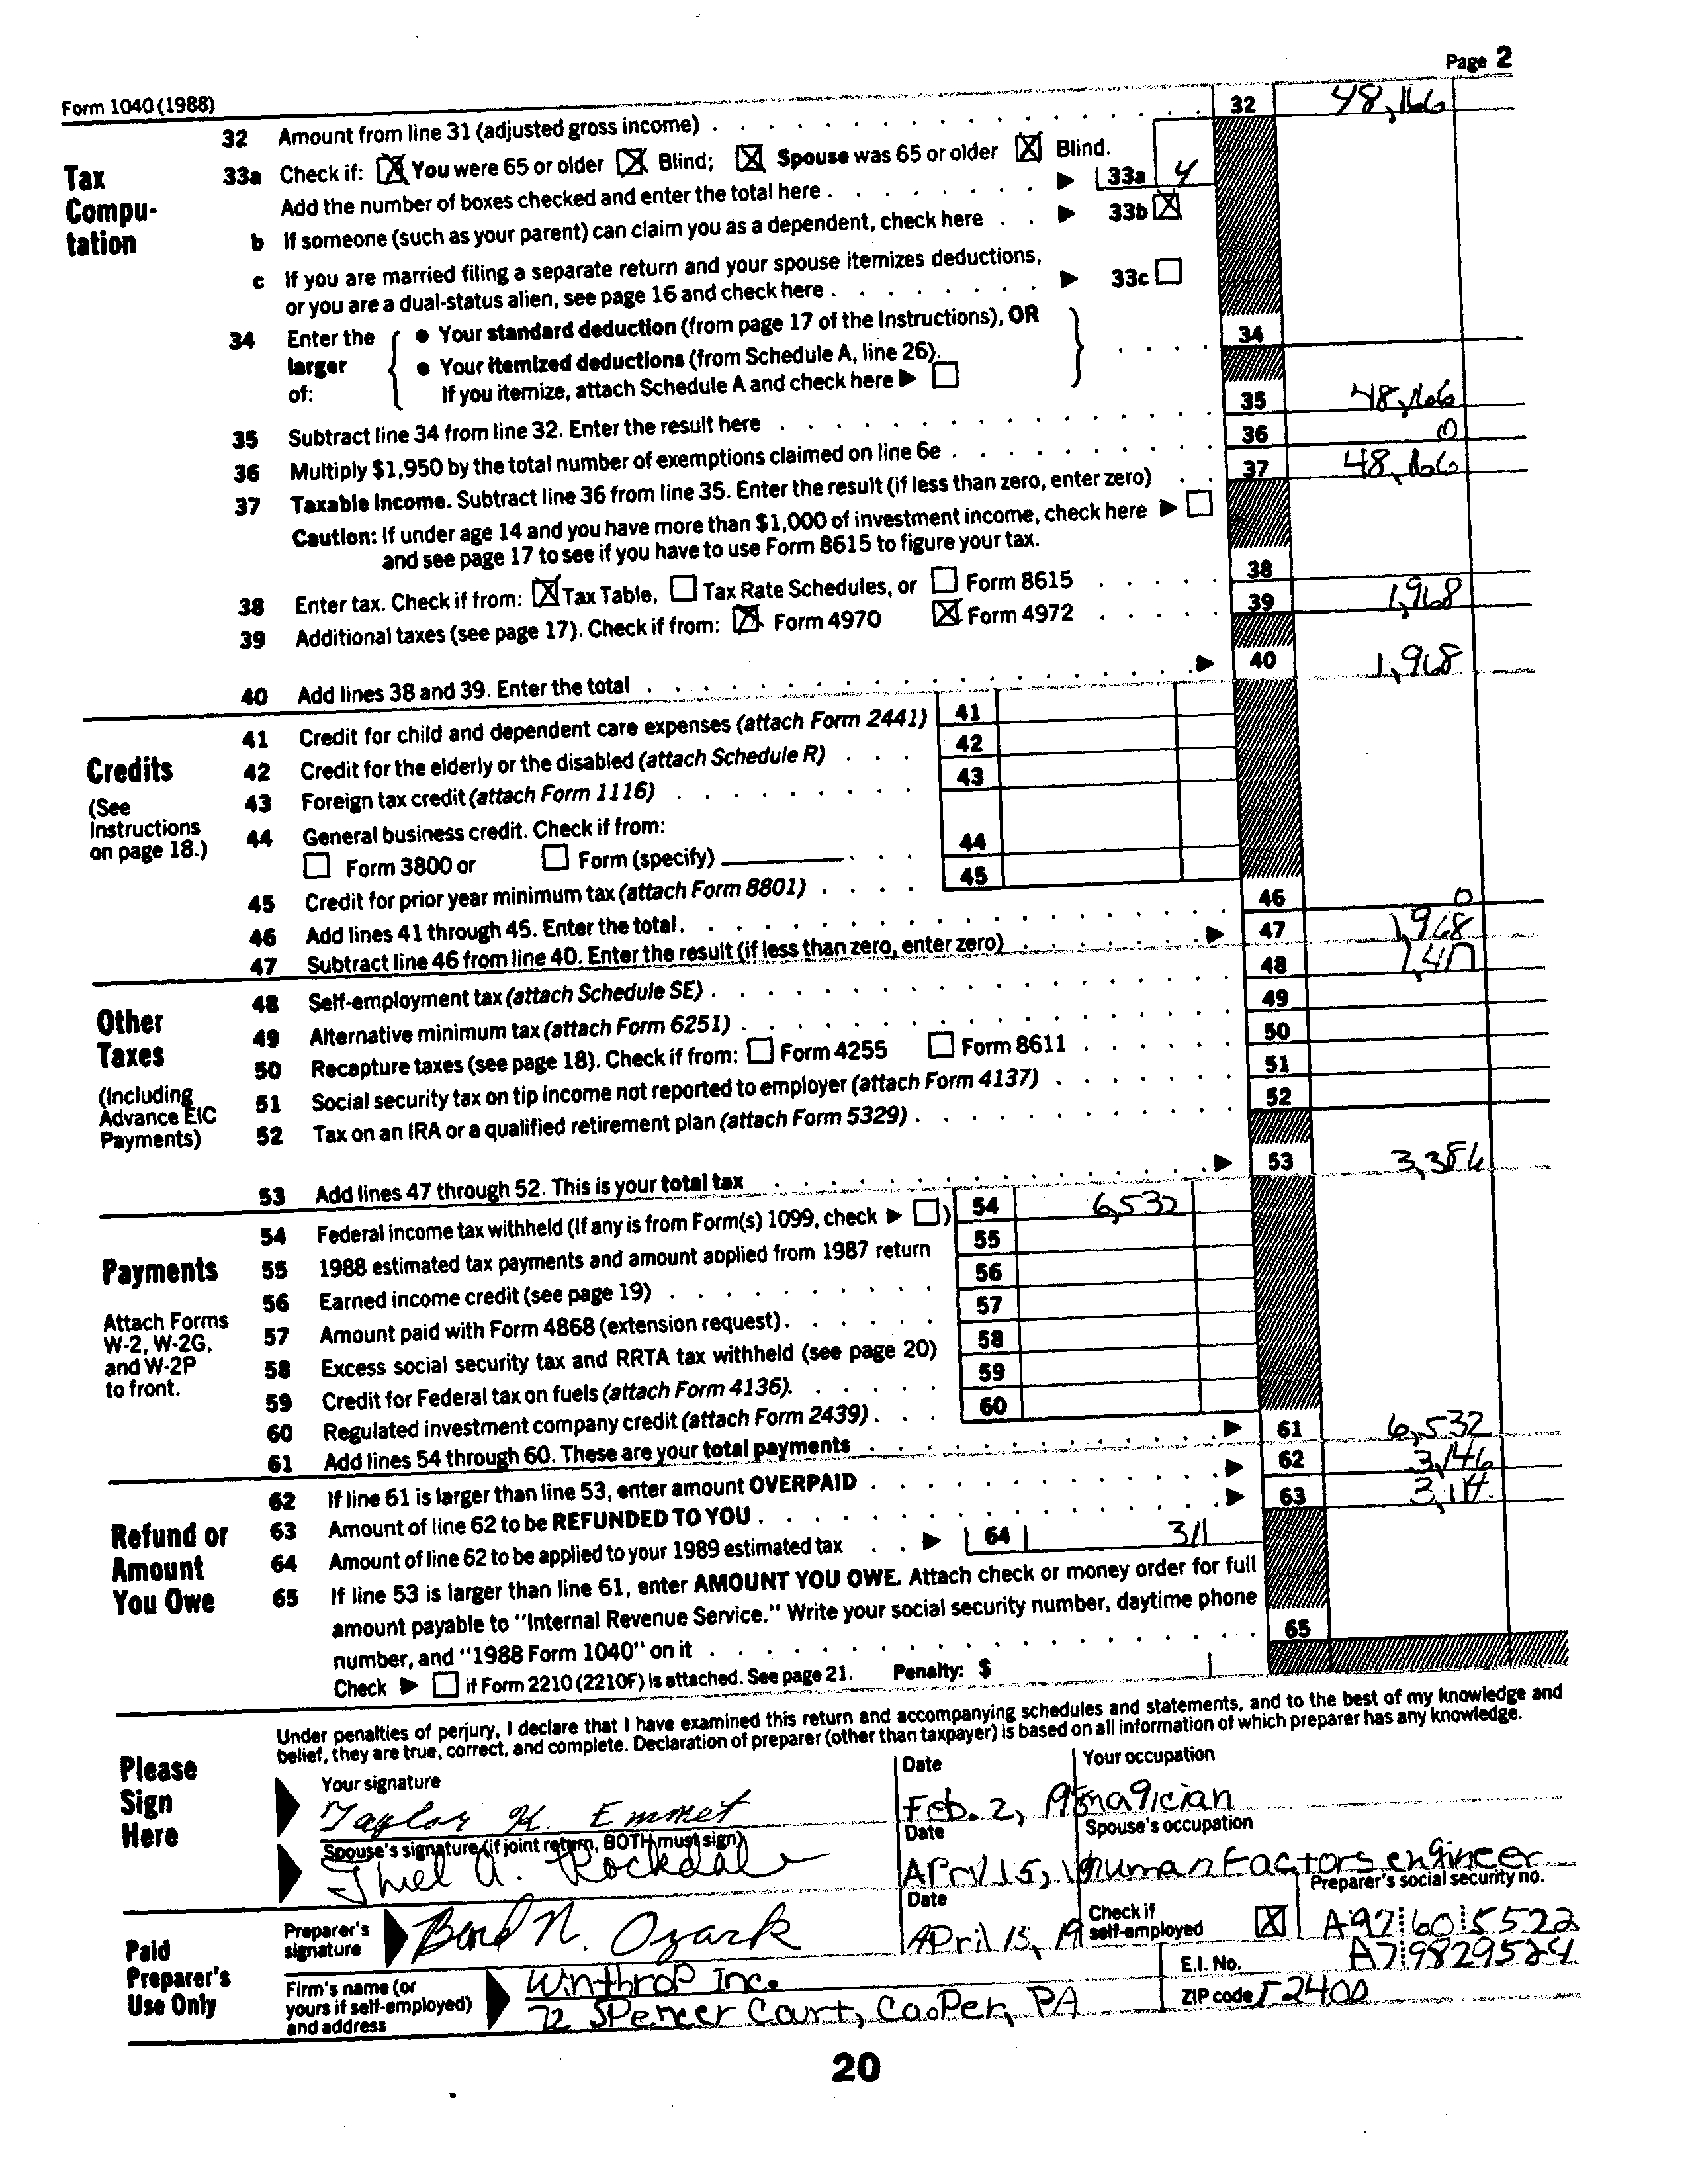 Page 2
Form 1040 (1988)
32 Amount from line 31 (adjusted gross income) 32 48,166
Tax Compu-tation
33a Check if: ☒ You were 65 or older ☒ Blind; ☒ Spouse was 65 or older ☒ Blind.
Add the number of boxes checked and enter the total here ▶ 33a 4
b If someone (such as your parent) can claim you as a dependent, check here ▶ 33b ☒
c If you are married filing a separate return and your spouse itemizes deductions,
or you are a dual-status alien, see page 16 and check here ▶ 33c ☐
34 Enter the larger of:
● Your standard deduction (from page 17 of the Instructions), OR
● Your itemized deductions (from Schedule A, line 26).
If you itemize, attach Schedule A and check here ▶ ☐
34
35 Subtract line 34 from line 32. Enter the result here 35 48,166
36 Multiply $1,950 by the total number of exemptions claimed on line 6e 36 0
37 Taxable income. Subtract line 36 from line 35. Enter the result (if less than zero, enter zero) 37 48,166
Caution: If under age 14 and you have more than $1,000 of investment income, check here ▶ ☐
and see page 17 to see if you have to use Form 8615 to figure your tax.
38 Enter tax. Check if from: ☒ Tax Table, ☐ Tax Rate Schedules, or ☐ Form 8615 38
39 Additional taxes (see page 17). Check if from: ☒ Form 4970 ☒ Form 4972 39 1,968
40 Add lines 38 and 39. Enter the total ▶ 40 1,968
Credits
(See Instructions on page 18.)
41 Credit for child and dependent care expenses (attach Form 2441) 41
42 Credit for the elderly or the disabled (attach Schedule R) 42
43 Foreign tax credit (attach Form 1116) 43
44 General business credit. Check if from:
☐ Form 3800 or ☐ Form (specify) 44
45 Credit for prior year minimum tax (attach Form 8801) 45
46 Add lines 41 through 45. Enter the total 46 0
47 Subtract line 46 from line 40. Enter the result (if less than zero, enter zero) ▶ 47 1,968
Other Taxes
(Including Advance EIC Payments)
48 Self-employment tax (attach Schedule SE) 48
49 Alternative minimum tax (attach Form 6251) 49
50 Recapture taxes (see page 18). Check if from: ☐ Form 4255 ☐ Form 8611 50
51 Social security tax on tip income not reported to employer (attach Form 4137) 51
52 Tax on an IRA or a qualified retirement plan (attach Form 5329) 52
53 Add lines 47 through 52. This is your total tax ▶ 53 3,386
Payments
Attach Forms W-2, W-2G, and W-2P to front.
54 Federal income tax withheld (If any is from Form(s) 1099, check ▶ ☐) 54 6,532
55 1988 estimated tax payments and amount applied from 1987 return 55
56 Earned income credit (see page 19) 56
57 Amount paid with Form 4868 (extension request) 57
58 Excess social security tax and RRTA tax withheld (see page 20) 58
59 Credit for Federal tax on fuels (attach Form 4136) 59
60 Regulated investment company credit (attach Form 2439) 60
61 Add lines 54 through 60. These are your total payments ▶ 61 6,532
Refund or Amount You Owe
62 If line 61 is larger than line 53, enter amount OVERPAID ▶ 62 3,146
63 Amount of line 62 to be REFUNDED TO YOU ▶ 63
64 Amount of line 62 to be applied to your 1989 estimated tax ▶ 64 311
65 If line 53 is larger than line 61, enter AMOUNT YOU OWE. Attach check or money order for full
amount payable to "Internal Revenue Service." Write your social security number, daytime phone
number, and "1988 Form 1040" on it 65
Check ▶ ☐ if Form 2210 (2210F) is attached. See page 21. Penalty: $
Please Sign Here
Under penalties of perjury, I declare that I have examined this return and accompanying schedules and statements, and to the best of my knowledge and
belief, they are true, correct, and complete. Declaration of preparer (other than taxpayer) is based on all information of which preparer has any knowledge.
Your signature Date Your occupation
Taylor K. Emmet Feb. 2, magician
Spouse's signature (if joint return, BOTH must sign) Date Spouse's occupation
Thiel A. Rockdale human factors engineer
Paid Preparer's Use Only
Preparer's signature Date Check if self-employed ☒ Preparer's social security no.
N. Ozark April 15, 19 A97 60 5522
Firm's name (or yours if self-employed) and address
Winthrop Inc. E.I. No. A7 9829524
72 Spencer Court, Cooper, PA ZIP code
20